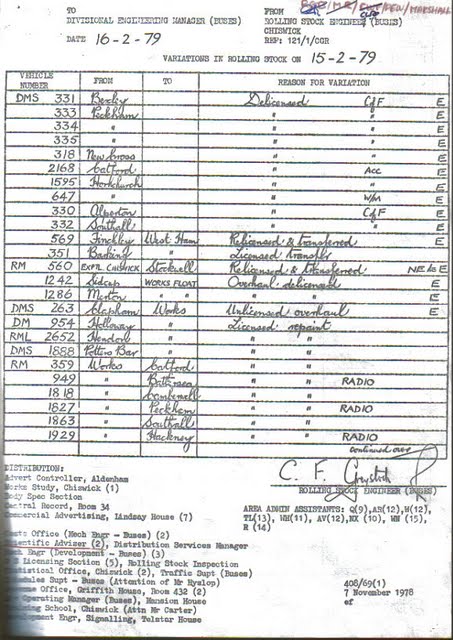 TO FROM
DIVISIONAL ENGINEERING MANAGER (BUSES) ROLLING STOCK ENGINEER (BUSES)
CHISWICK
DATE 16-2-79 REF: 121/1/CGR
VARIATIONS IN ROLLING STOCK ON 15-2-79
VEHICLE NUMBER FROM TO REASON FOR VARIATION
DMS 331 Bexley Delicensed CofF E
333 Peckham " " E
334 " " " E
335 " " " E
318 New Cross " " E
2168 Catford " Acc E
1595 Hornchurch " " E
647 " " W/M E
330 Alperton " CofF E
332 Southall " " E
569 Finchley West Ham Relicensed & transferred E
351 Barking " Licensed transfer
RM 560 EXPTL CHISWICK Stockwell Relicensed & transferred NE to E
1242 Sidcup WORKS FLOAT Overhaul delicensed E
1286 Merton " " " E
DMS 263 Clapham Works Unlicensed overhaul E
DM 954 Holloway " Licensed repaint
RML 2652 Hendon " " "
DMS 1888 Potters Bar " " "
RM 359 Works Catford " "
949 " Battersea " " RADIO
1818 " Camberwell " "
1827 " Peckham " " RADIO
1863 " Southall " "
1929 " Hackney " " RADIO
continued over
ROLLING STOCK ENGINEER (BUSES)
DISTRIBUTION:
Advert Controller, Aldenham
Works Study, Chiswick (1)
Body Spec Section
Central Record, Room 34
Commercial Advertising, Lindsay House (7)
AREA ADMIN ASSISTANTS: Q(9), AR(12), H(12),
TL(13), WH(11), AV(12), NX (10), WN (15),
R (14)
Office (Mech Engr - Buses) (2)
Scientific Adviser (2), Distribution Services Manager
Mech Engr (Development - Buses) (3)
Licensing Section (5), Rolling Stock Inspection
Statistical Office, Chiswick (2), Traffic Supt (Buses)
Schedules Supt - Buses (Attention of Mr Hyslop)
Office, Griffith House, Room 432 (2)
Operating Manager (Buses), Mansion House
Training School, Chiswick (Attn Mr Carter)
Development Engr, Signalling, Telstar House
408/69(1)
7 November 1978
ef